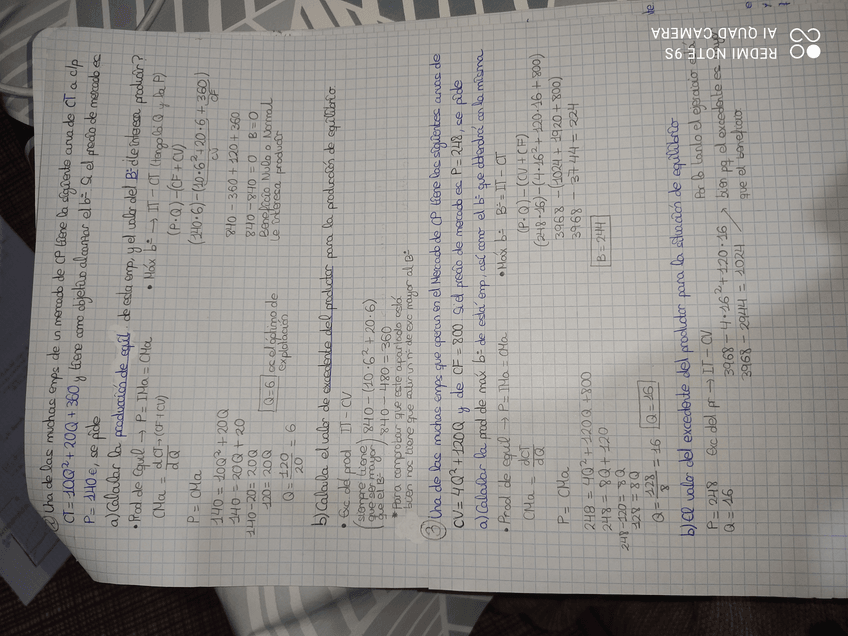 ② Una de las muchas emps de un mercado de CP tiene la siguiente curva de CT a c/p
CT = 10Q² + 20Q + 360 y tiene como objetivo alcanzar el bº. Si el precio de mercado es
P = 140€, se pide
a) Calcular la producción de equil. de esta emp. y el valor del Bº ¿le interesa producir?
• Prod de Equil → P = IMa = CMa
CMa = dCT → (CF + CV)
dQ
P = CMa
140 = 10Q² + 20Q
140 = 20Q + 20
140 - 20 = 20Q
120 = 20Q
Q = 120 = 6
20
Q = 6 es el óptimo de
explotación
• Máx bº → IT - CT (tengo la Q y la P)
(P · Q) - (CF + CV)
(140 · 6) - (10 · 6² + 20 · 6 + 360)
CV CF
840 - 360 + 120 + 360
840 - 840 = 0 B = 0
Beneficio Nulo o Normal
Le interesa producir
b) Calcula el valor de excedente del productor para la producción de equilibrio
• Exc del prod IT - CV
(siempre tiene
que ser mayor
que el Bº) 840 - (10 · 6² + 20 · 6)
840 - 480 = 360
* Para comprobar que este apartado está
bien nos tiene que salir un nº de exc mayor al Bº
③ Una de las muchas emps que operan en el Mercado de CP tiene las siguientes curvas de
CV = 4Q² + 120Q y de CF = 800 Si el precio de mercado es P = 248, se pide
a) Calcular la prod de máx bº de está emp, así como el bº que obtendrá con la misma
• Prod de equil → P = IMa = CMa
CMa = dCT
dQ
P = CMa
248 = 4Q² + 120Q + 800
248 = 8Q + 120
248 - 120 = 8Q
128 = 8Q
Q = 128 = 16 Q = 16
8
• Máx bº Bº = IT - CT
(P · Q) - (CV + CF)
(248 · 16) - (4 · 16² + 120 · 16 + 800)
3968 - (1024 + 1920 + 800)
3968 - 3744 = 224
B = 244
b) El valor del excedente del productor para la situación de equilibrio
P = 248 Exc del pr → IT - CV
Q = 16
3968 - 4 · 16² + 120 · 16
3968 - 2944 = 1024
Por lo tanto el ejercicio está
bien pq el excedente es
que el beneficio
REDMI NOTE 9S
AI QUAD CAMERA